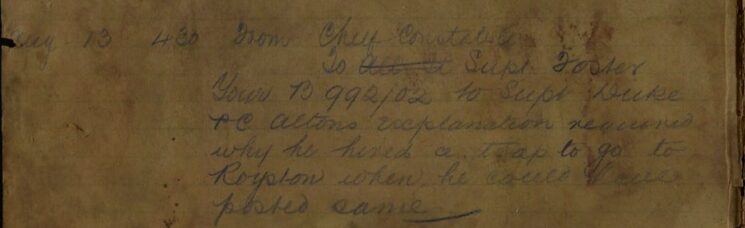 Aug 13 430 From Chief Constable
To All St Supt Foster
Your B 992/02 to Supt Duke
PC Altons explanation required
why he hired a trap to go to
Royston when he could have
posted same